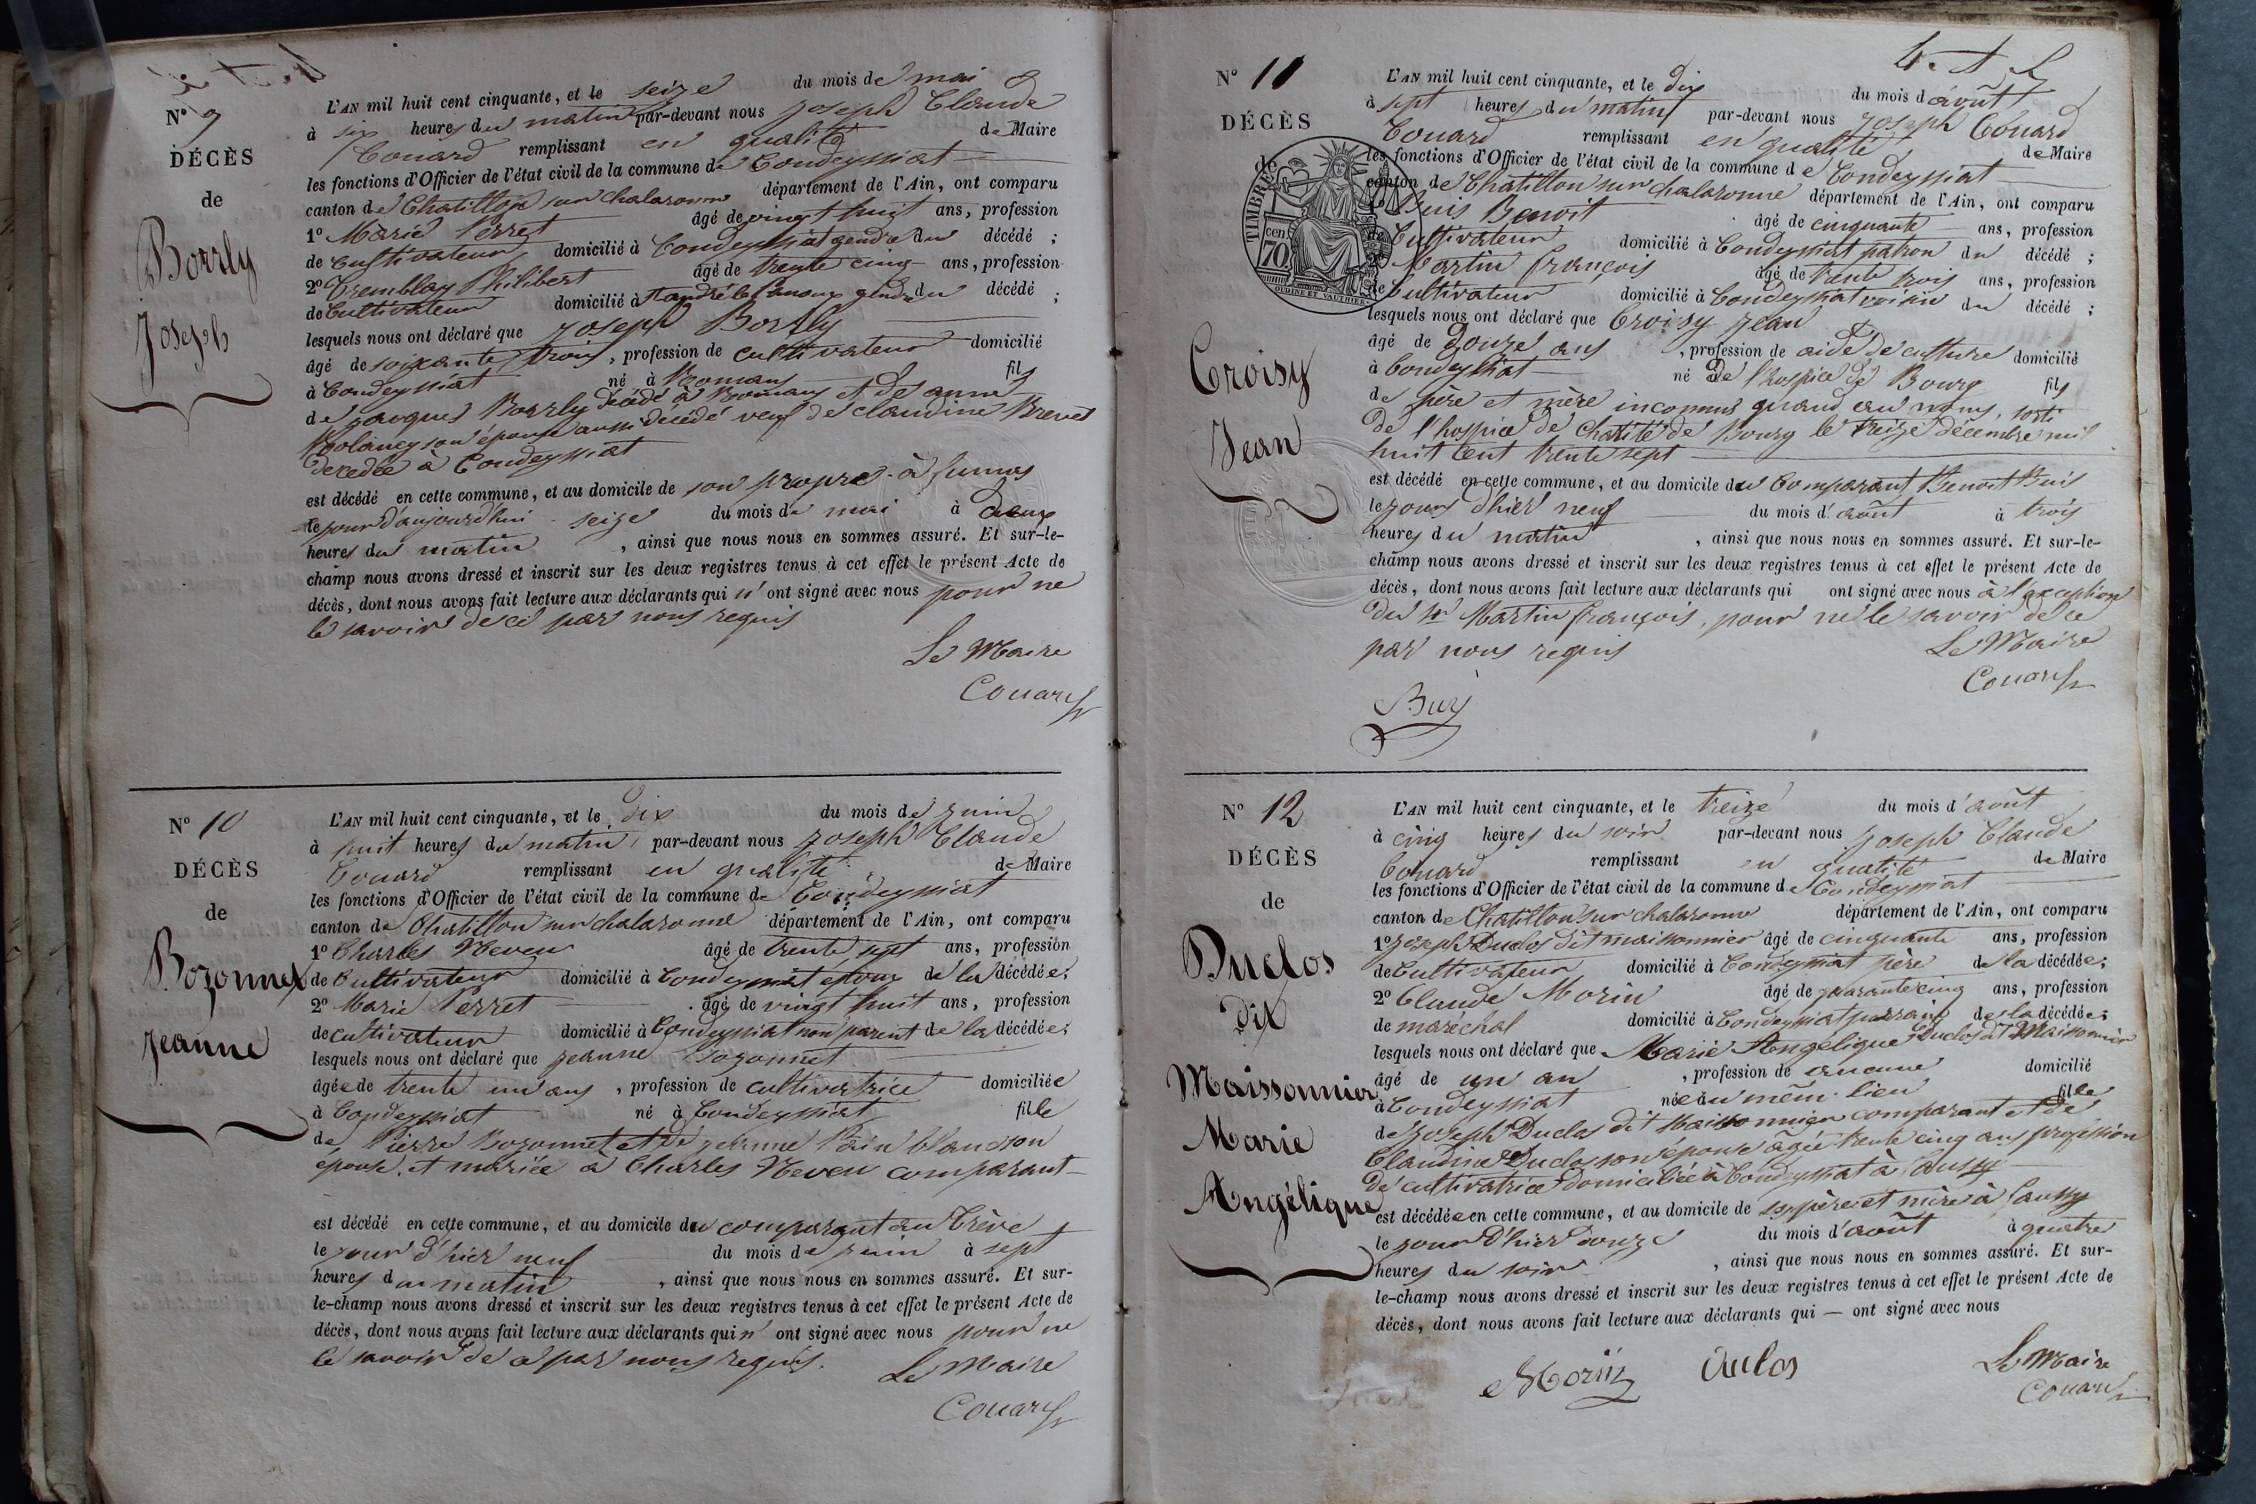 N° 9
DÉCÈS
de
Borrly
Joseph
L'AN mil huit cent cinquante, et le seize du mois de mai
à six heures du matin par-devant nous Joseph Claude
Couard remplissant en qualité de Maire
les fonctions d'Officier de l'état civil de la commune de Condeyssiat
canton de Chatillon sur chalaronne département de l'Ain, ont comparu
1° Marie Perret âgé de vingt huit ans, profession
de cultivateur domicilié à Condeyssiat gendre du décédé ;
2° Tremblay Philibert âgé de trente cinq ans, profession
de Cultivateur domicilié à St andré le panoux gendre du décédé ;
lesquels nous ont déclaré que Joseph Borrly
âgé de soixante trois, profession de cultivateur domicilié
à Condeyssiat né à Romans fils
de Jacques Borrly décédé à Romans et de anne
son épouse aussi décédé veuf de claudine Brevet
decedée à Condeyssiat
est décédé en cette commune, et au domicile de son propre à
le jour d'aujourd'hui seize du mois de mai à deux
heures du matin, ainsi que nous nous en sommes assuré. Et sur-le-
champ nous avons dressé et inscrit sur les deux registres tenus à cet effet le présent Acte de
décès, dont nous avons fait lecture aux déclarants qui n' ont signé avec nous pour ne
le savoir de ce par nous requis
Le Maire
Couard
N° 10
DÉCÈS
de
Bozonnet
Jeanne
L'AN mil huit cent cinquante, et le dix du mois de juin
à huit heures du matin, par-devant nous Joseph Claude
Couard remplissant en qualité de Maire
les fonctions d'Officier de l'état civil de la commune de Condeyssiat
canton de Chatillon sur chalaronne département de l'Ain, ont comparu
1° Charles Neveu âgé de trente sept ans, profession
de Cultivateur domicilié à Condeyssiat epoux de la décédée;
2° Marie Perret âgé de vingt huit ans, profession
de cultivateur domicilié à Condeyssiat non parent de la décédée;
lesquels nous ont déclaré que jeanne Bozonnet
âgée de trente un ans, profession de cultivatrice domiciliée
à Condeyssiat né à Condeyssiat fille
de Pierre Bozonnet et de jeanne Pain blanc son
épouse, et mariée à Charles Neveu comparant
est décédé en cette commune, et au domicile du comparant au Crève
le jour d'hier neuf du mois de juin à sept
heures du matin, ainsi que nous nous en sommes assuré. Et sur-
le-champ nous avons dressé et inscrit sur les deux registres tenus à cet effet le présent Acte de
décès, dont nous avons fait lecture aux déclarants qui n' ont signé avec nous pour ne
le savoir de ce par nous requis.
Le Maire
Couard
N° 11
DÉCÈS
de
TIMBRE
70 cen
OUDINE ET VAUTHIER
Croisy
Jean
L'AN mil huit cent cinquante, et le dix du mois d'août
à sept heures du matin par-devant nous Joseph Couard
Couard remplissant en qualité de Maire
les fonctions d'Officier de l'état civil de la commune de Condeyssiat
canton de Chatillon sur chalaronne département de l'Ain, ont comparu
1° Buis Benoit âgé de cinquante ans, profession
de Cultivateur domicilié à Condeyssiat patron du décédé ;
2° Martin françois âgé de trente trois ans, profession
de Cultivateur domicilié à Condeyssiat voisin du décédé ;
lesquels nous ont déclaré que Croisy jean
âgé de douze ans, profession de aide de culture domicilié
à Condeyssiat né De l'hospice de Bourg fils
de père et mère inconnus quand au noms, sorti
de l'hospice de charité de Bourg le treize décembre mil
huit cent trente sept
est décédé en cette commune, et au domicile du Comparant Benoit Buis
le jour d'hier neuf du mois d'août à trois
heures du matin, ainsi que nous nous en sommes assuré. Et sur-le-
champ nous avons dressé et inscrit sur les deux registres tenus à cet effet le présent Acte de
décès, dont nous avons fait lecture aux déclarants qui ont signé avec nous à l'exception
du sr Martin françois, pour ne le savoir de ce
par nous requis
Le Maire
Couard
Buis
N° 12
DÉCÈS
de
Duclos
Dit
Maissonnier
Marie
Angélique
L'AN mil huit cent cinquante, et le treize du mois d'août
à cinq heures du soir par-devant nous Joseph Claude
Couard remplissant en qualité de Maire
les fonctions d'Officier de l'état civil de la commune de Condeyssiat
canton de Chatillon sur chalaronne département de l'Ain, ont comparu
1° Joseph Duclos dit maissonnier âgé de cinquante ans, profession
de Cultivateur domicilié à Condeyssiat père de la décédée;
2° Claude Morin âgé de quarante cinq ans, profession
de maréchal domicilié à Condeyssiat parrain de la décédée;
lesquels nous ont déclaré que Marie Angélique Duclos dt Maissonnier
âgé de un an, profession de aucune domicilié
à Condeyssiat née au même lieu fille
de Joseph Duclos dit Maissonnier comparant et de
Claudine Duclos son épouse âgée trente cinq ans profession
de cultivatrice domiciliée à Condeyssiat à Caussy
est décédée en cette commune, et au domicile de ses père et mère à Caussy
le jour d'hier douze du mois d'août à quatre
heures du soir, ainsi que nous nous en sommes assuré. Et sur-
le-champ nous avons dressé et inscrit sur les deux registres tenus à cet effet le présent Acte de
décès, dont nous avons fait lecture aux déclarants qui — ont signé avec nous
Morin Duclos Le Maire
Couard